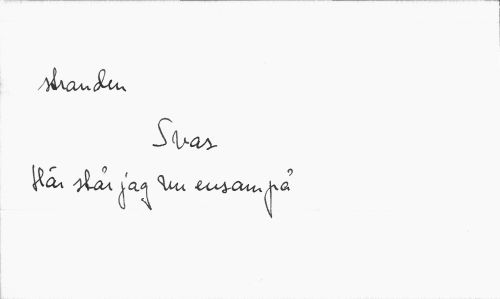 stranden
Svas
Här står jag nu ensam på